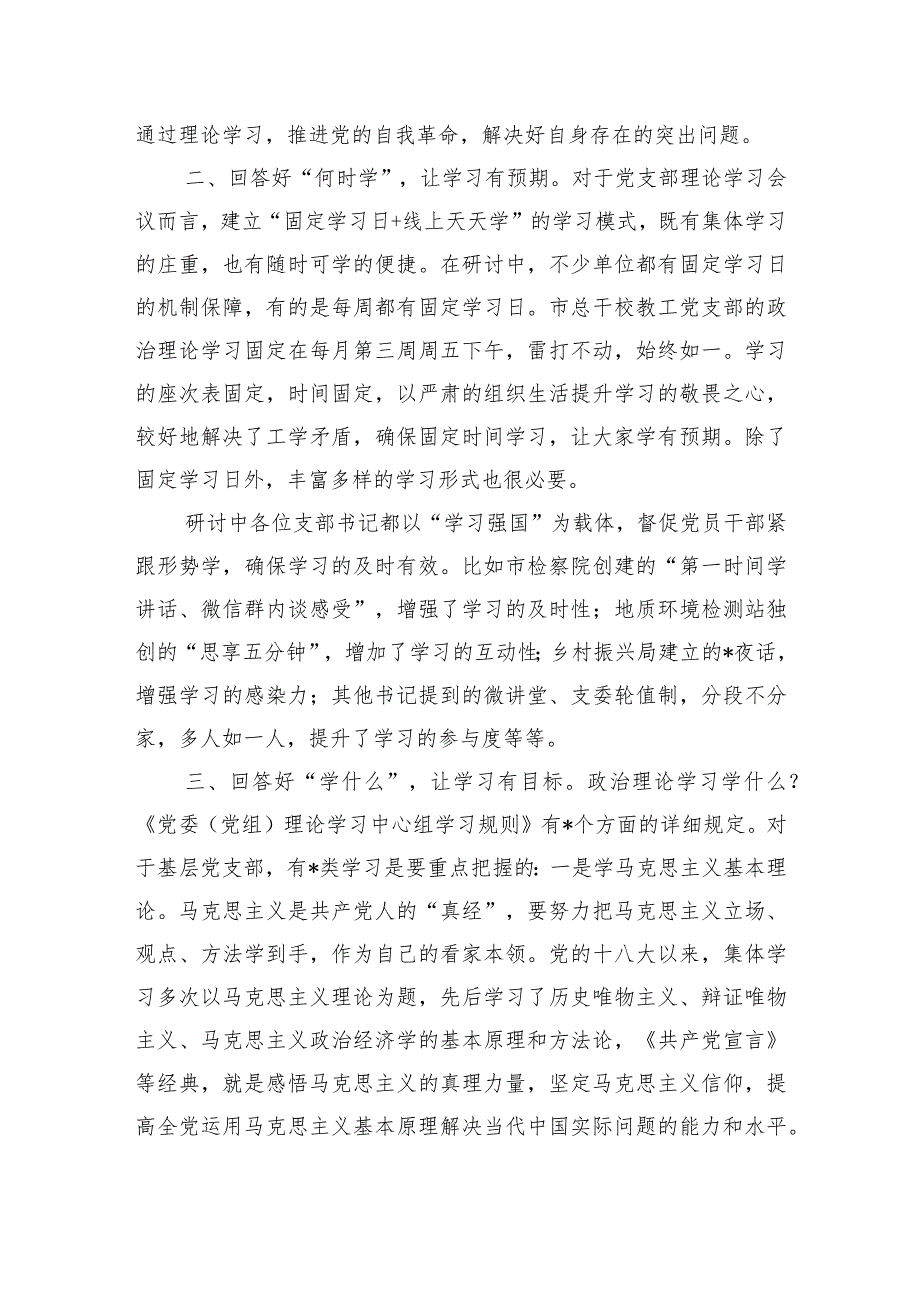 通过理论学习，推进党的自我革命，解决好自身存在的突出问题。
二、回答好“何时学”，让学习有预期。对于党支部理论学习会
议而言，建立“固定学习日+线上天天学”的学习模式，既有集体学习
的庄重，也有随时可学的便捷。在研讨中，不少单位都有固定学习日
的机制保障，有的是每周都有固定学习日。市总干校教工党支部的政
治理论学习固定在每月第三周周五下午，雷打不动，始终如一。学习
的座次表固定，时间固定，以严肃的组织生活提升学习的敬畏之心，
较好地解决了工学矛盾，确保固定时间学习，让大家学有预期。除了
固定学习日外，丰富多样的学习形式也很必要。
研讨中各位支部书记都以“学习强国”为载体，督促党员干部紧
跟形势学，确保学习的及时有效。比如市检察院创建的“第一时间学
讲话、微信群内谈感受”，增强了学习的及时性；地质环境检测站独
创的“思享五分钟”，增加了学习的互动性；乡村振兴局建立的*夜话，
增强学习的感染力；其他书记提到的微讲堂、支委轮值制，分段不分
家，多人如一人，提升了学习的参与度等等。
三、回答好“学什么”，让学习有目标。政治理论学习学什么？
《党委（党组）理论学习中心组学习规则》有*个方面的详细规定。对
于基层党支部，有*类学习是要重点把握的：一是学马克思主义基本理
论。马克思主义是共产党人的“真经”，要努力把马克思主义立场、
观点、方法学到手，作为自己的看家本领。党的十八大以来，集体学
习多次以马克思主义理论为题，先后学习了历史唯物主义、辩证唯物
主义、马克思主义政治经济学的基本原理和方法论，《共产党宣言》
等经典，就是感悟马克思主义的真理力量，坚定马克思主义信仰，提
高全党运用马克思主义基本原理解决当代中国实际问题的能力和水平。